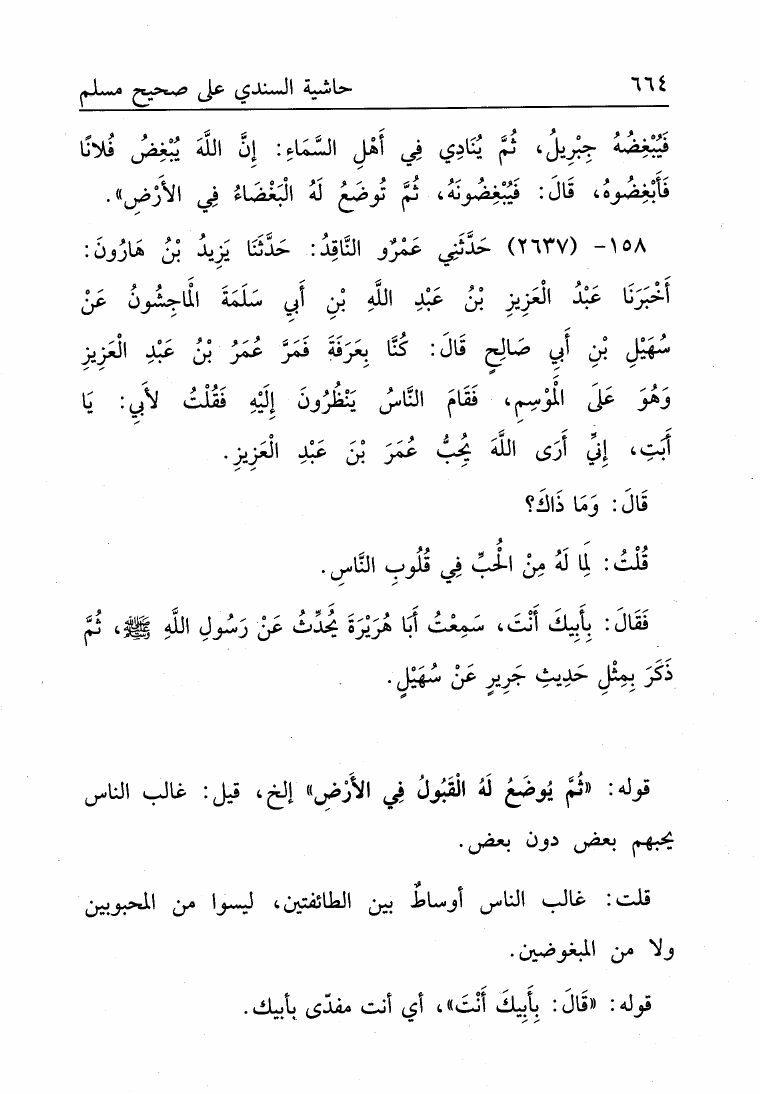 ٦٦٤ حاشية السندي على صحيح مسلم
فَيُبْغِضُهُ جِبْرِيلُ، ثُمَّ يُنَادِي فِي أَهْلِ السَّمَاءِ: إِنَّ اللَّهَ يُبْغِضُ فُلانًا
فَأَبْغِضُوهُ، قَالَ: فَيُبْغِضُونَهُ، ثُمَّ تُوضَعُ لَهُ الْبَغْضَاءُ فِي الأَرْضِ».
١٥٨- (٢٦٣٧) حَدَّثَنِي عَمْرٌو النَّاقِدُ: حَدَّثَنَا يَزِيدُ بْنُ هَارُونَ:
أَخْبَرَنَا عَبْدُ الْعَزِيزِ بْنُ عَبْدِ اللَّهِ بْنِ أَبِي سَلَمَةَ الْمَاجِشُونُ عَنْ
سُهَيْلِ بْنِ أَبِي صَالِحٍ قَالَ: كُنَّا بِعَرَفَةَ فَمَرَّ عُمَرُ بْنُ عَبْدِ الْعَزِيزِ
وَهُوَ عَلَى الْمَوْسِمِ، فَقَامَ النَّاسُ يَنْظُرُونَ إِلَيْهِ فَقُلْتُ لأَبِي: يَا
أَبَتِ، إِنِّي أَرَى اللَّهَ يُحِبُّ عُمَرَ بْنَ عَبْدِ الْعَزِيزِ.
قَالَ: وَمَا ذَاكَ؟
قُلْتُ: لِمَا لَهُ مِنْ الْحُبِّ فِي قُلُوبِ النَّاسِ.
فَقَالَ: بِأَبِيكَ أَنْتَ، سَمِعْتُ أَبَا هُرَيْرَةَ يُحَدِّثُ عَنْ رَسُولِ اللَّهِ ﷺ، ثُمَّ
ذَكَرَ بِمِثْلِ حَدِيثِ جَرِيرٍ عَنْ سُهَيْلٍ.
قوله: «ثُمَّ يُوضَعُ لَهُ الْقَبُولُ فِي الأَرْضِ» إلخ، قيل: غالب الناس
يحبهم بعض دون بعض.
قلت: غالب الناس أوساطٌ بين الطائفتين، ليسوا من المحبوبين
ولا من المبغوضين.
قوله: «قَالَ: بِأَبِيكَ أَنْتَ»، أي أنت مفدّى بأبيك.